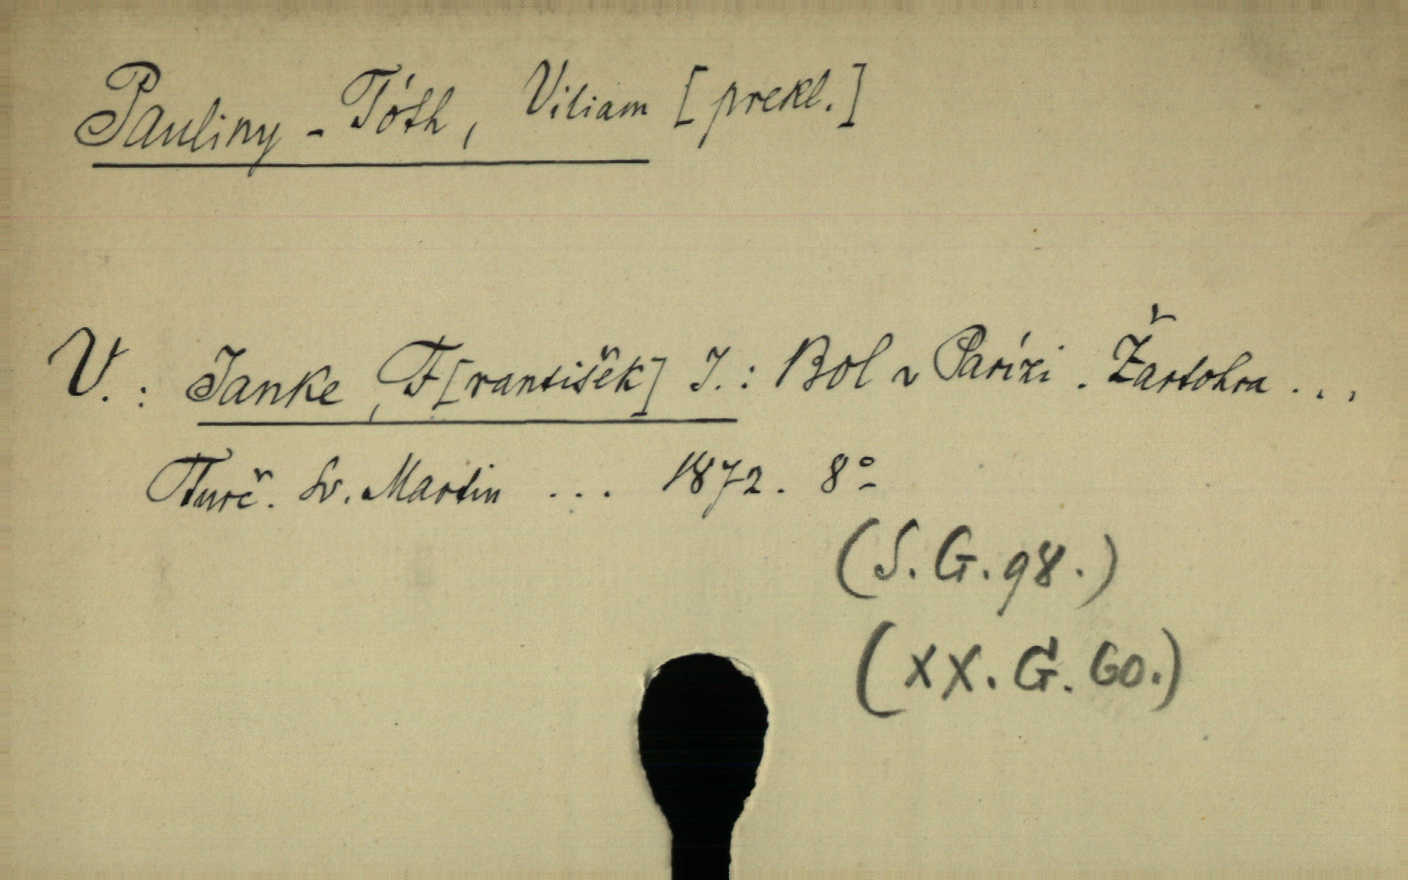 Pauliny-Tóth, Viliam [prekl.]
V.: Janke, F[rantišek] J.: Bol v Parízi. Žartohra...
Turč. Sv. Martin ... 1872. 8°
(S.G.98.)
(XX.G.60.)